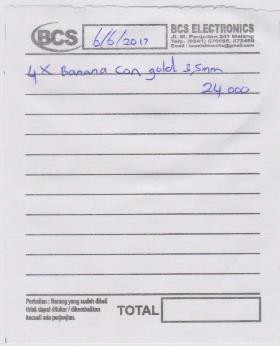 BCS
6/6/2017
BCS ELECTRONICS
Jl. M. Panjaitan 241 Malang
4 x Banana Con gold 3,5mm
24 000
Perhatian : Barang yang sudah dibeli
tidak dapat ditukar / dikembalikan
kecuali ada perjanjian.
TOTAL